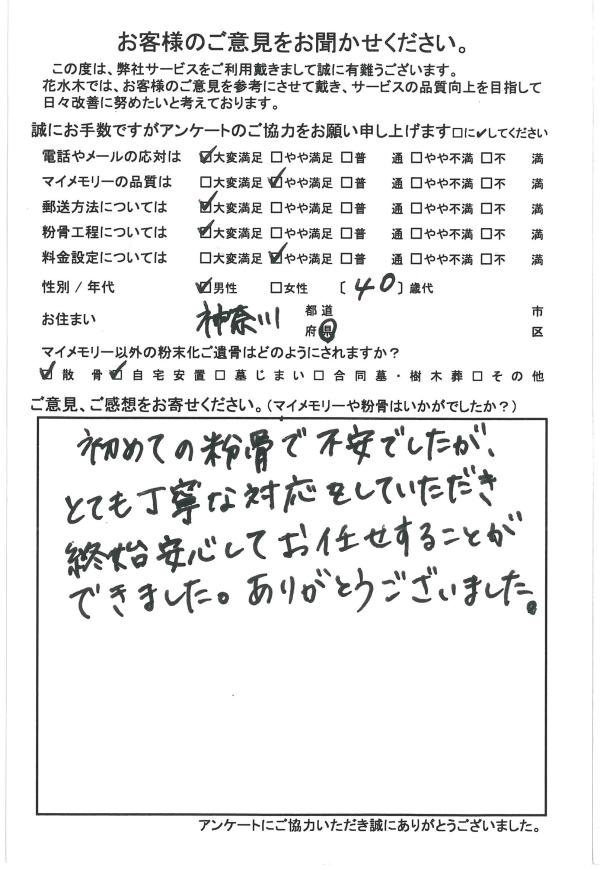 お客様のご意見をお聞かせください。
この度は、弊社サービスをご利用戴きまして誠に有難うございます。
花水木では、お客様のご意見を参考にさせて戴き、サービスの品質向上を目指して
日々改善に努めたいと考えております。
誠にお手数ですがアンケートのご協力をお願い申し上げます□に✔してください
電話やメールの応対は ☑大変満足 □やや満足 □普 通 □やや不満 □不 満
マイメモリーの品質は □大変満足 ☑やや満足 □普 通 □やや不満 □不 満
郵送方法については ☑大変満足 □やや満足 □普 通 □やや不満 □不 満
粉骨工程については ☑大変満足 □やや満足 □普 通 □やや不満 □不 満
料金設定については □大変満足 ☑やや満足 □普 通 □やや不満 □不 満
性別 / 年代 ☑男性 □女性 〔 40 〕歳代
お住まい 神奈川 都 道 府 県 市 区
マイメモリー以外の粉末化ご遺骨はどのようにされますか？
☑散 骨 ☑自宅安置 □墓じまい □合同墓・樹木葬 □その他
ご意見、ご感想をお寄せください。（マイメモリーや粉骨はいかがでしたか？）
初めての粉骨で不安でしたが、
とても丁寧な対応をしていただき
終始安心してお任せすることが
できました。ありがとうございました。
アンケートにご協力いただき誠にありがとうございました。